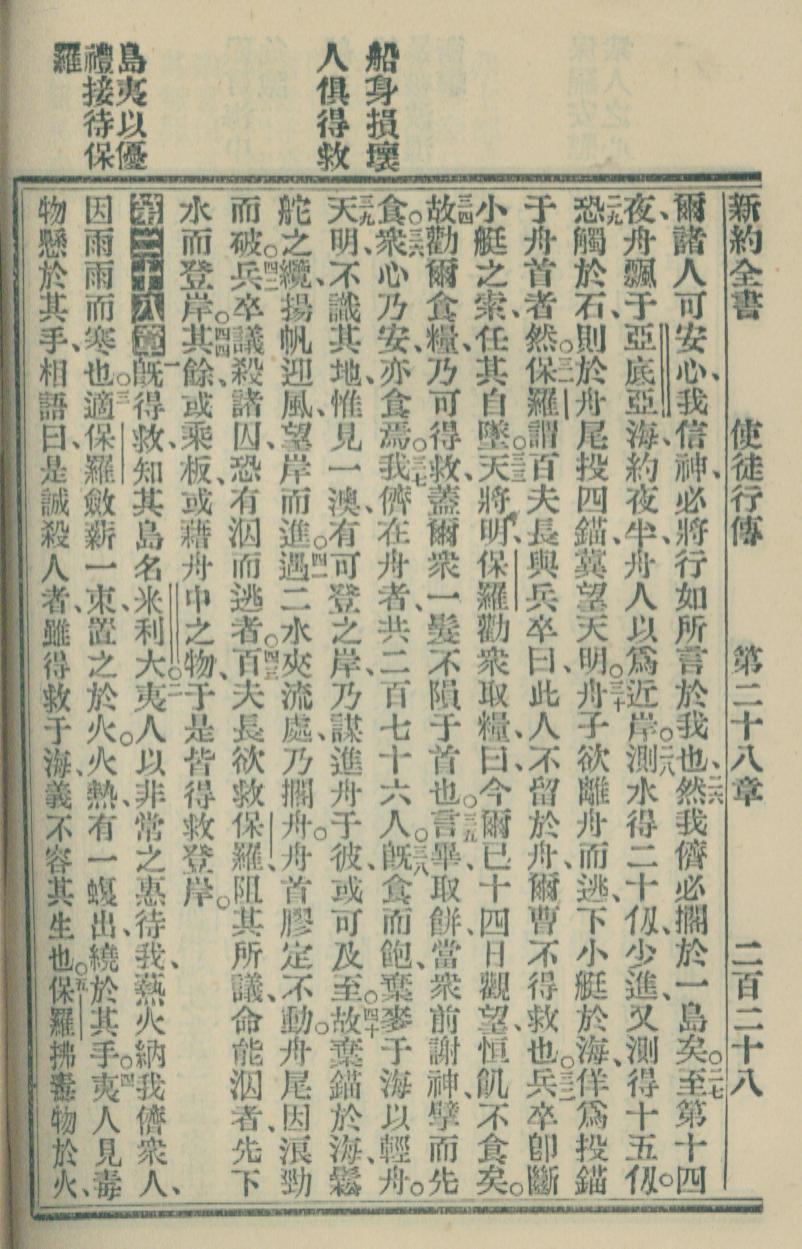 新約全書 使徒行傳 第二十八章 二百二十八
船身損壞
人俱得救
島夷以優
禮接待保
羅
爾諸人可安心、我信神必將行如所言於我也、二六然我儕必擱於一島矣。二七至第十四
夜、舟飄于亞底亞海、約夜半、舟人以爲近岸。二八測水得二十仭、少進、又測得十五仭。
二九恐觸於石、則於舟尾投四錨、冀望天明。三十舟子欲離舟而逃、下小艇於海、佯爲投錨
于舟首者然。三一保羅謂百夫長與兵卒曰、此人不留於舟、爾曹不得救也。三二兵卒卽斷
小艇之索、任其自墜。三三天將明、保羅勸衆取糧、曰、今爾已十四日觀望、恒飢不食矣。
三四故勸爾食糧、乃可得救、蓋爾衆一髮不隕于首也。三五言畢、取餅、當衆前謝神、擘而先
食。三六衆心乃安、亦食焉。三七我儕在舟者、共二百七十六人。三八旣食而飽、棄麥于海以輕舟。
三九天明、不識其地、惟見一澳、有可登之岸、乃謀進舟于彼、或可及至。四十故棄錨於海、鬆
舵之纜、揚帆迎風、望岸而進。四一遇二水夾流處、乃擱舟。舟首膠定不動。舟尾因浪勁
而破。四二兵卒議殺諸囚、恐有泅而逃者。四三百夫長欲救保羅、阻其所議、命能泅者、先下
水而登岸。四四其餘或乘板、或藉舟中之物、于是皆得救登岸。
第二十八章 一旣得救、知其島名米利大。二夷人以非常之惠待我、爇火納我儕衆人、
因雨雨而寒也。三適保羅斂薪一束、置之於火。火熱、有一蝮出、繞於其手。四夷人見毒
物懸於其手、相語曰、是誠殺人者、雖得救于海、義不容其生也。五保羅拂毒物於火、